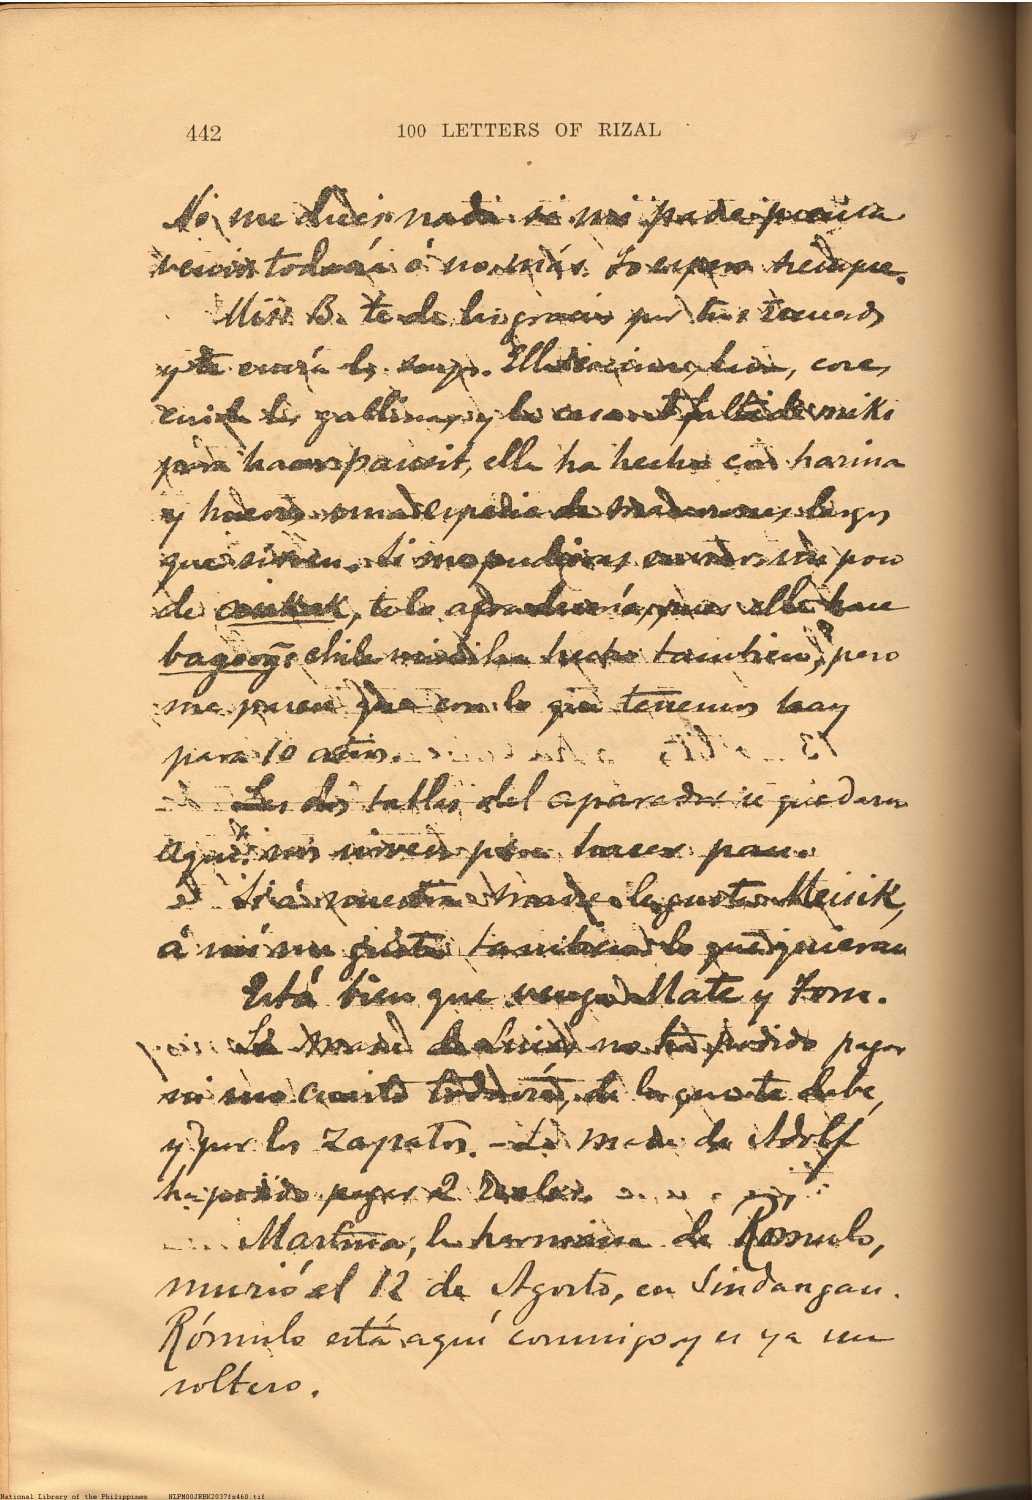 442 100 LETTERS OF RIZAL
No me dices nada si mi padre piensa
venir todavía ó no más. Lo espero siempre.
Miss B. te da las gracias por tus recuerdos
y te envía los suyos. Ella cocina, lava, cose,
cuida las gallinas y la casa. A falta de miki
para hacer pansit, ella ha hecho con harina
y huevos una especie de macarrones largos
que sirven. Si me pudieras enviar un poco
de te lo agradecería, pues ella hace
bagoong; chile ha hecho tambien, pero
me parece que con lo que tenemos hay
para 10 años.
Las dos tablas del aparador se quedaron
aquí: nos sirven para hacer pan.
Si á nuestra madre le gusta Meisik,
á mí me gusta tambien: lo que quieran
Está bien que venga Mate y Tom.
La madre de Luis no ha podido pagar
ni un cuarto todavía, de lo que te debe,
y por los zapatos. - La madre de Adolf
ha podido pagar 2 reales.
Martina, la hermana de Rómulo,
murió el 12 de Agosto, en Sindangan.
Rómulo está aquí conmigo y es ya un
soltero.
National Library of the Philippines NLPM00JRBK2037fs460.tif